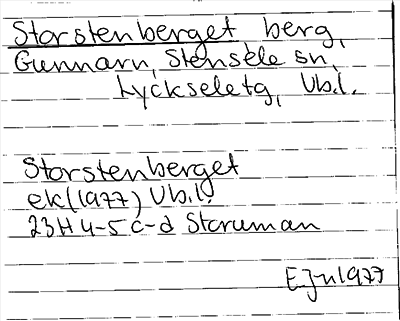 Storstenberget, berg,
Gunnarn, Stensele sn,
Lyckseletg, Vb.l.
Storstenberget
ek(1977) Vb.l.
23H 4-5 c-d Storuman
EJn1977